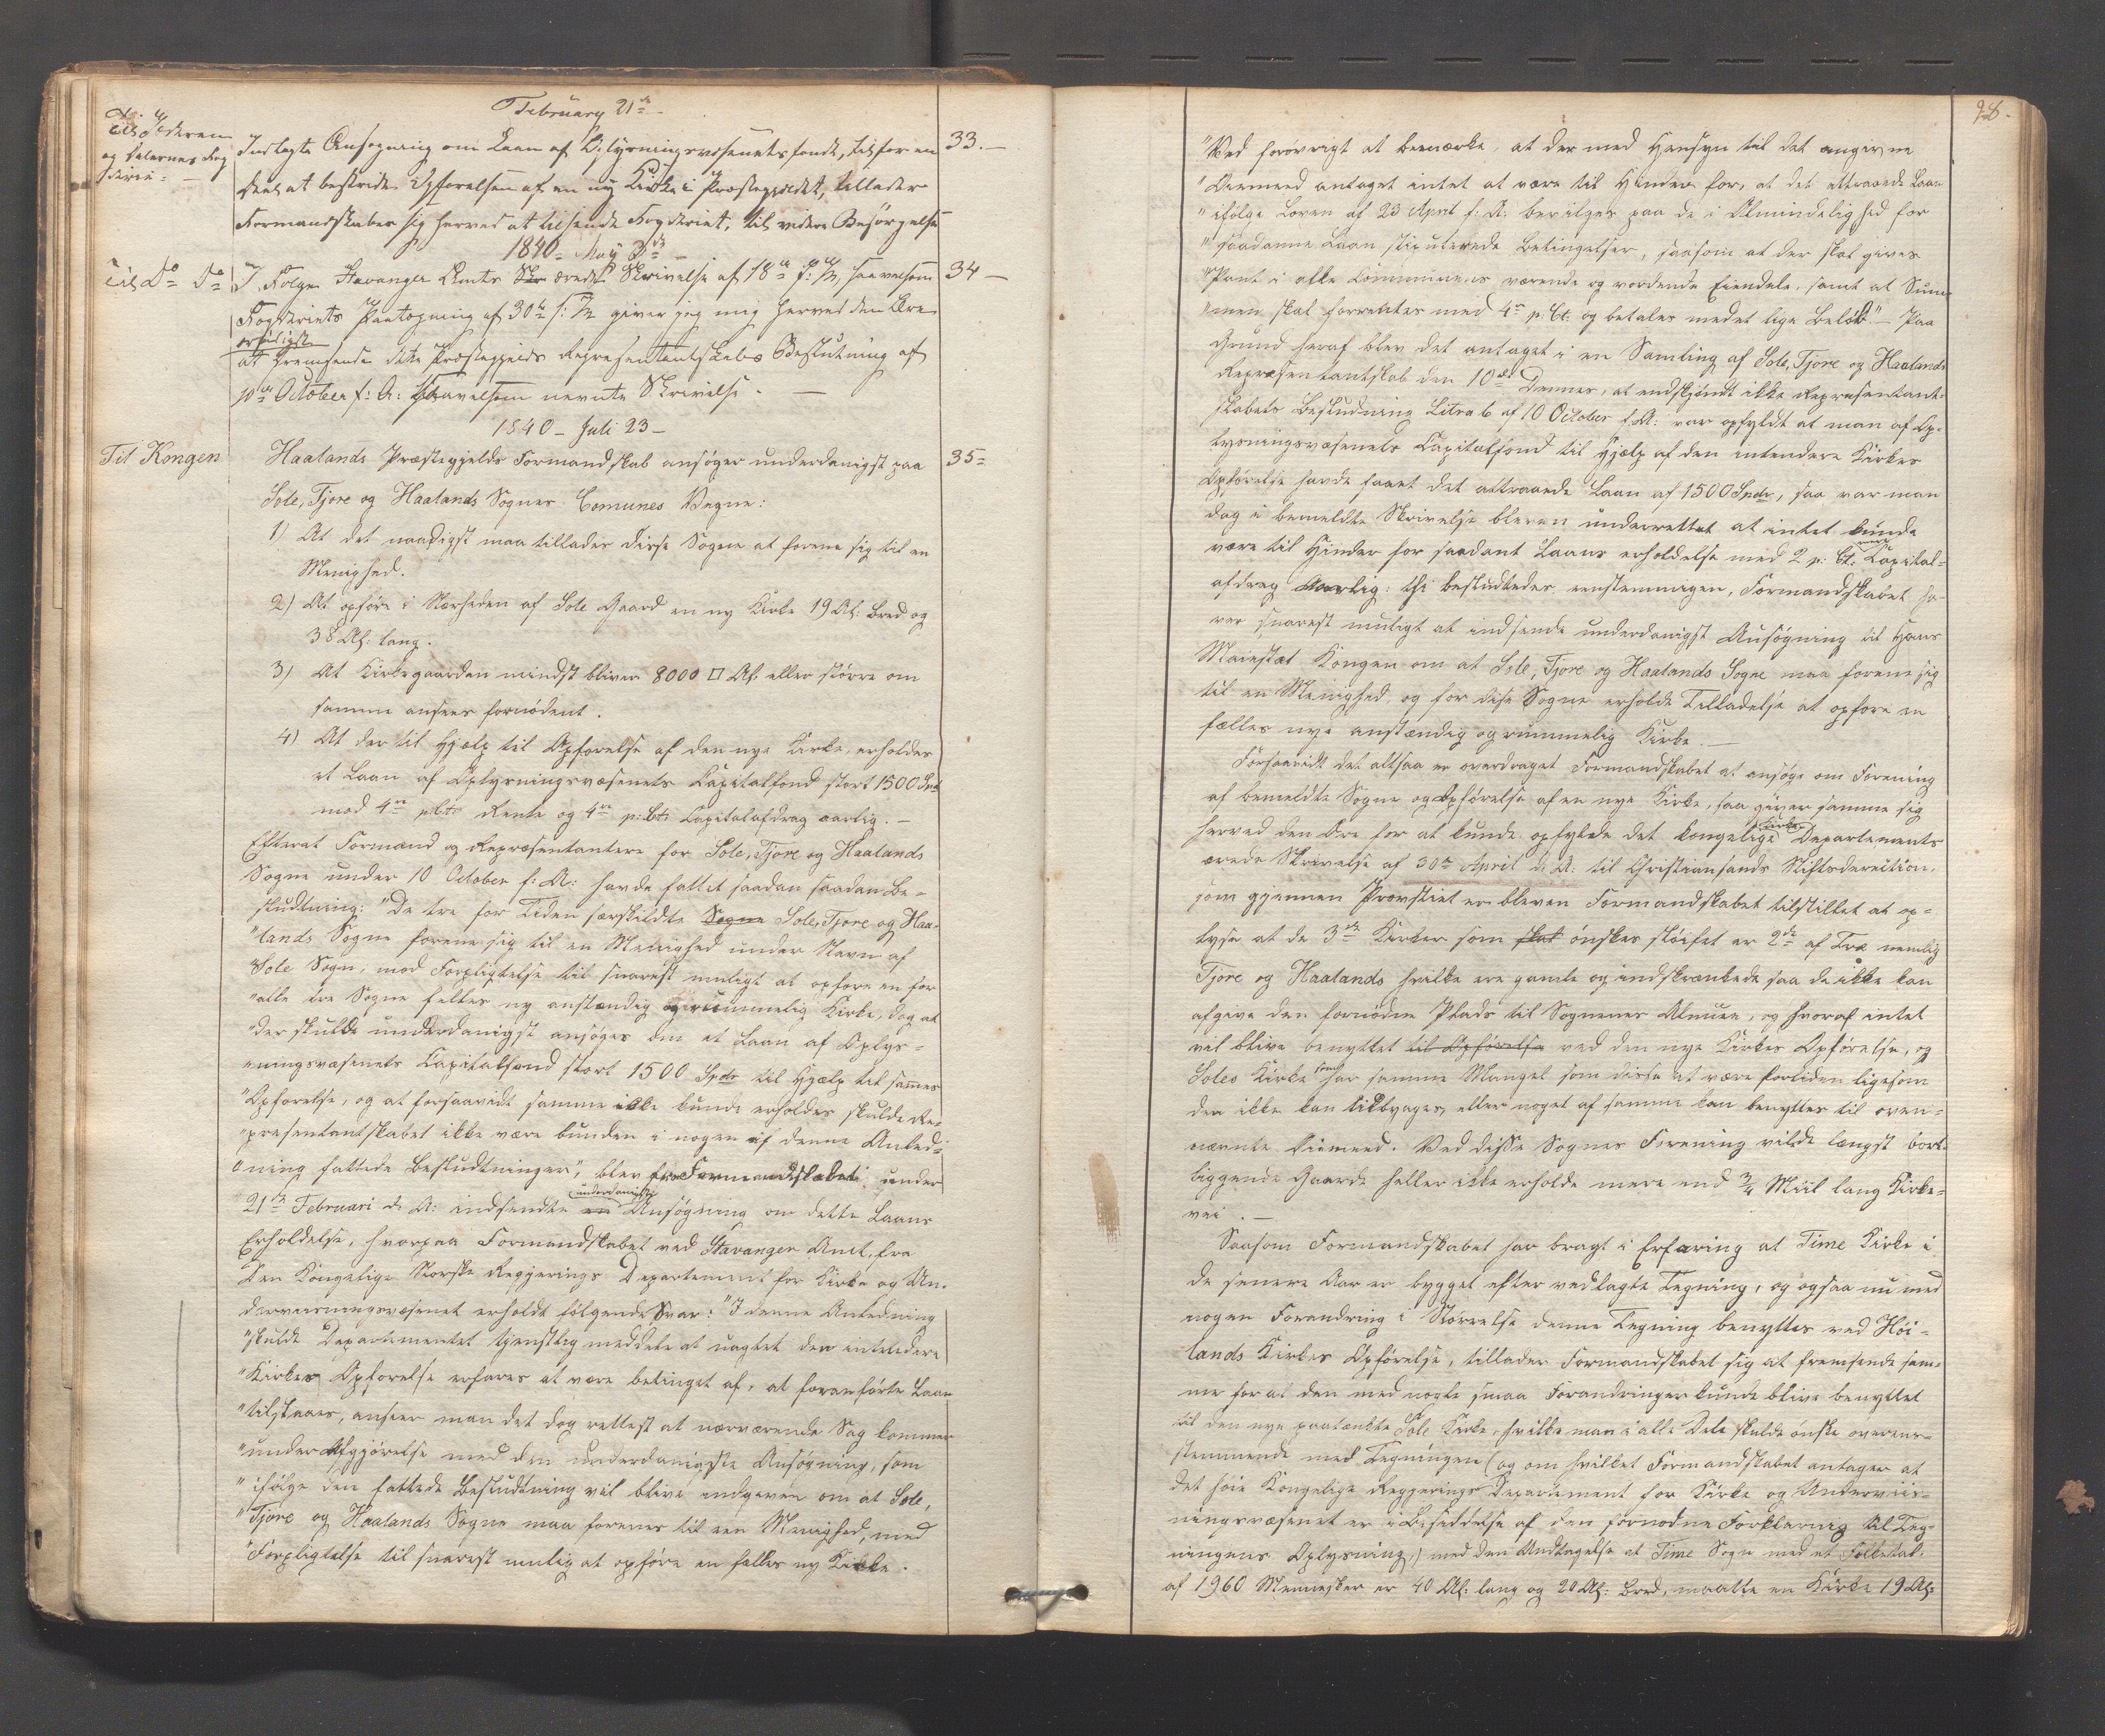 February 21de
Til Jederen
og Dalernes Fog
derie: —
Indlagte Ansøgning om Laan af Oplysningsvæsenets fondt, til for en 33. —
deel at bestride Opførelsen af en ny Kirke i Præstegjeldet, tillader
Formandskabet sig herved at tilsende Fogderiet, til videre Besørgelse
1840 - May 3de
Til Do Do I Følge Stavanger Amts ærede Skrivelse af 18de f: M, saavelsom 34 —
Fogderiets Paategning af 30te f: M giver jeg mig herved den Ære
ærbødigst
at fremsende dette Præstegjelds Representantskabs Beslutning af
10de October f: A: saavelsom nevnte Skrivelse. —
1840 - Juli 23 -
Til Kongen Haalands Præstegjelds Formandskab ansøger underdanigst paa 35 =
Sole, Tjore og Haalands Sognes Comunes Vegne:
1) At det naadigst maa tillades disse Sogne at forene sig til en
Menighed.
2) At opføre i Nærheden af Sole Gaard en ny Kirke 19 Al: bred og
38 Al: lang.
3) At Kirkegaarden mindst bliver 8000 □ Al. eller større om
samme ansees fornødent.
4) At der til Hjælp til Opførelse af den nye Kirke, erholdes
et Laan af Oplysningsvæsenets Capitalfond stort 1500 Spd
mod 4re pCt: Rente og 4re p: Ct: Capitalafdrag aarlig. —
Efterat Formænd og Repræsentantere for Sole, Tjore og Haalands
Sogne under 10 October f: A: havde fattet saadan saadan Be=
slutning: "De tre for Tiden særskildte Sogne Sole, Tjore og Haa-
"lands Sogne forene sig til en Menighed under Navn af
"Sole Sogn, mod Forpligtelse til snarest muligt at opføre en for
"alle tre Sogne felles ny anstændig og rummelig Kirke, dog at
"der skulde underdanigst ansøges om et Laan af Oplys=
"ningsvæsenets Capitalfond stort 1500 Spdr til Hjælp til sammes
"Opførelse, og at forsaavidt samme ikke kunde erholdes skulde Re=
"presentantskabet ikke være bunden i nogen af denne Anled=
"ning fattede Beslutninger", blev fra Formandskabet under
underdanigste
21de Februari d: A: indsendte en Ansøgning om dette Laans
Erholdelse, hvorpaa Formandskabet ved Stavanger Amt, fra
Den Kongelige Norske Regjerings Departement for Kirke og Un-
derviisningsvæsenet erholdt følgende Svar: "I denne Anledning
"skulde Departementet tjenstlig meddele at uagtet den intendere
"Kirkes Opførelse erfares at være betinget af, at foranførte Laan
"tilstaaes, anseer man det dog rettest at nærværende Sag kommer
"under Afgjørelse med den underdanigste Ansøgning, som
"ifølge den fattede Beslutning vil blive indgiven om at Sole,
"Tjore og Haalands Sogne maa forenes til een Menighed, med
"Forpligtelse til snarest mulig at opføre en felles ny Kirke.
28.
"Ved forøvrigt at bemærke, at der med Hensyn til det angivne
"Øiemeed antaget intet at være til Hinder for, at det attraaede Laan
"ifølge Loven af 23 April f: A: bevilges paa de i Almindelighed for
"saadanne Laan stipulerede Betingelser, saasom at der skal gives
"Pant i alle Communens værende og vordende Eiendele, samt at Sum-
"men skal forrentes med 4re p: Ct: og betales medet lige Beløb". — Paa
Grund heraf blev det antaget i en Samling af Sole, Tjore og Haalands
Repræsentantskab den 10de Dennes, at endskjøndt ikke Repræsentant=
skabets Beslutning Litra b af 10 October f. A: var opfyldt at man af Op-
lysningsvæsenets Capitalfond til Hjælp af den intendere Kirkes
Opførelse havde faaet det attraaede Laan af 1500 Spdr, saa var man
dog i bemeldte Skrivelse bleven underrettet at intet kunde
være til Hinder for saadant Laans erholdelse med 2 p: Ct: Capital=
afdrag aarlig: thi besluttedes eenstemmigen, Formandskabet ha-
ver snarest muligt at indsende underdanigst Ansøgning til Hans
Maiestæt Kongen om at Sole, Tjore og Haalands Sogne maa forene sig
til en Menighed, og for disse Sogne erholde Tilladelse at opføre en
fælles nye anstændig og rummelig Kirke. —
Forsaavidt det altsaa er overdraget Formandskabet at ansøge om Forening
af bemeldte Sogne og Opførelse af en nye Kirke, saa giver samme sig
Kirke
herved den Ære for at kunde opfylde det kongelige Departements
ærede Skrivelse af 30te April d: A: til Christiansands Stiftsdirection,
som gjennem Provstiet er bleven Formandskabet tilstillet at op=
lyse at de 3de Kirker som skal ønskes sløifet er 2de af Træ nemlig
Tjore og Haalands hvilke ere gamle og indskrænkede saa de ikke kan
afgive den fornødne Plads til Sognenes Almue, og hvoraf intet
vil blive benyttet til Opførelse ved den nye Kirkes Opførelse, og
Soles Kirke som har samme Mangel som disse at være forliden ligesom
den ikke kan tilbygges, eller noget af samme kan benyttes til oven=
nævnte Øiemeed. Ved disse Sognes Forening vilde længst bort-
liggende Gaarde heller ikke erholde mere end 3/4 Miil lang Kirke=
vei. —
Saasom Formandskabet har bragt i Erfaring at Time Kirke i
de senere Aar er bygget efter vedlagte Tegning, og ogsaa nu med
nogen Forandring i Størrelse denne Tegning benyttes ved Høi=
lands Kirkes Opførelse, tillader Formandskabet sig at fremsende sam-
me for at den med nogle smaa Forandringer kunde blive benyttet
til den nye paatænkte Sole Kirke, hvilke man i alle Dele skulde ønske overens=
stemmende med Tegningen (og om hvilket Formandskabet antager at
det høie Kongelige Regjerings Departement for Kirke og Underviis=
ningsvæsenet er i Besiddelse af den fornødne Forklaring til Teg=
ningens Oplysning,) med den Undtagelse at Time Sogn med et Folketal
af 1960 Mennesker er 40 Al: lang og 20 Al: bred, maatte en Kirke 19 Al: